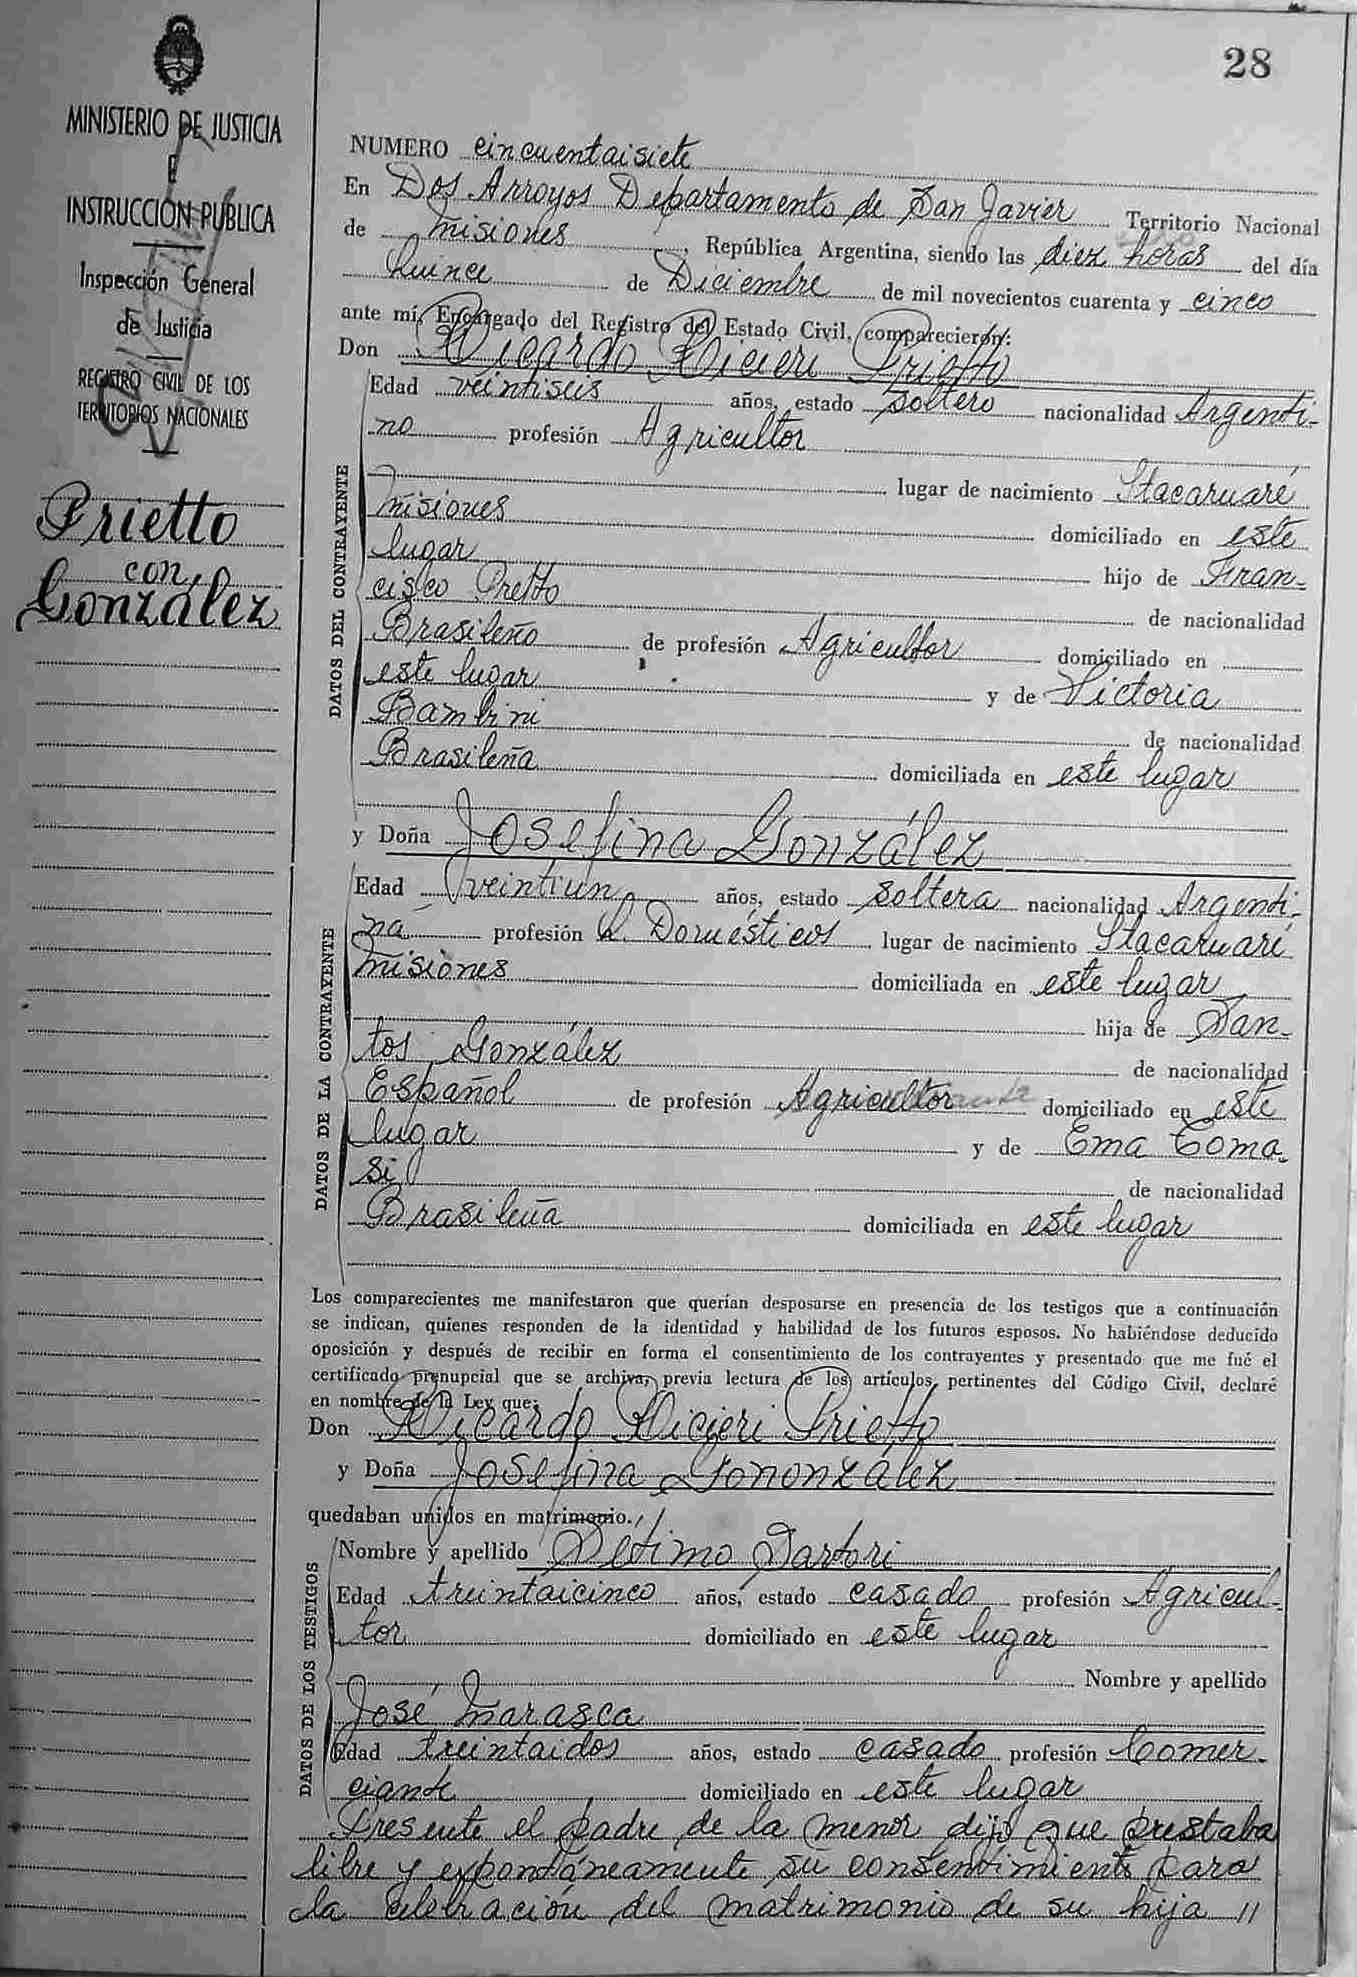 28
MINISTERIO DE JUSTICIA
E
INSTRUCCIÓN PÚBLICA
Inspección General
de Justicia
REGISTRO CIVIL DE LOS
TERRITORIOS NACIONALES
Prietto
con
González
NUMERO cincuentaisiete
En Dos Arroyos Departamento de San Javier Territorio Nacional
de Misiones, República Argentina, siendo las diez horas del día
Quince de Diciembre de mil novecientos cuarenta y cinco
ante mí, Encargado del Registro del Estado Civil, comparecieron:
Don Ricardo Ricieri Prietto
DATOS DEL CONTRAYENTE
Edad veintiseis años, estado soltero nacionalidad Argenti-
no profesión Agricultor
lugar de nacimiento Itacaruaré
Misiones domiciliado en este
lugar hijo de Fran-
cisco Pretto de nacionalidad
Brasileño de profesión Agricultor domiciliado en
este lugar y de Victoria
Bambini de nacionalidad
Brasileña domiciliada en este lugar
y Doña Josefina González
DATOS DE LA CONTRAYENTE
Edad veintiun años, estado soltera nacionalidad Argenti-
na profesión Q. Domésticos lugar de nacimiento Itacaruaré
Misiones domiciliada en este lugar
hija de San-
tos González de nacionalidad
Español de profesión Agricultor domiciliado en este
lugar y de Ema Toma-
si de nacionalidad
Brasileña domiciliada en este lugar
Los comparecientes me manifestaron que querían desposarse en presencia de los testigos que a continuación
se indican, quienes responden de la identidad y habilidad de los futuros esposos. No habiéndose deducido
oposición y después de recibir en forma el consentimiento de los contrayentes y presentado que me fué el
certificado prenupcial que se archiva, previa lectura de los artículos pertinentes del Código Civil, declaré
en nombre de la Ley que:
Don Ricardo Ricieri Prietto
y Doña Josefina Gononzález
quedaban unidos en matrimonio.
DATOS DE LOS TESTIGOS
Nombre y apellido Sétimo Sartori
Edad treintaicinco años, estado casado profesión Agricul-
tor domiciliado en este lugar
Nombre y apellido
José Marasca
Edad treintaidos años, estado casado profesión Comer-
ciante domiciliado en este lugar
Presente el padre de la menor dijo que prestaba
libre y expontáneamente su consentimiento para
la celebración del matrimonio de su hija //